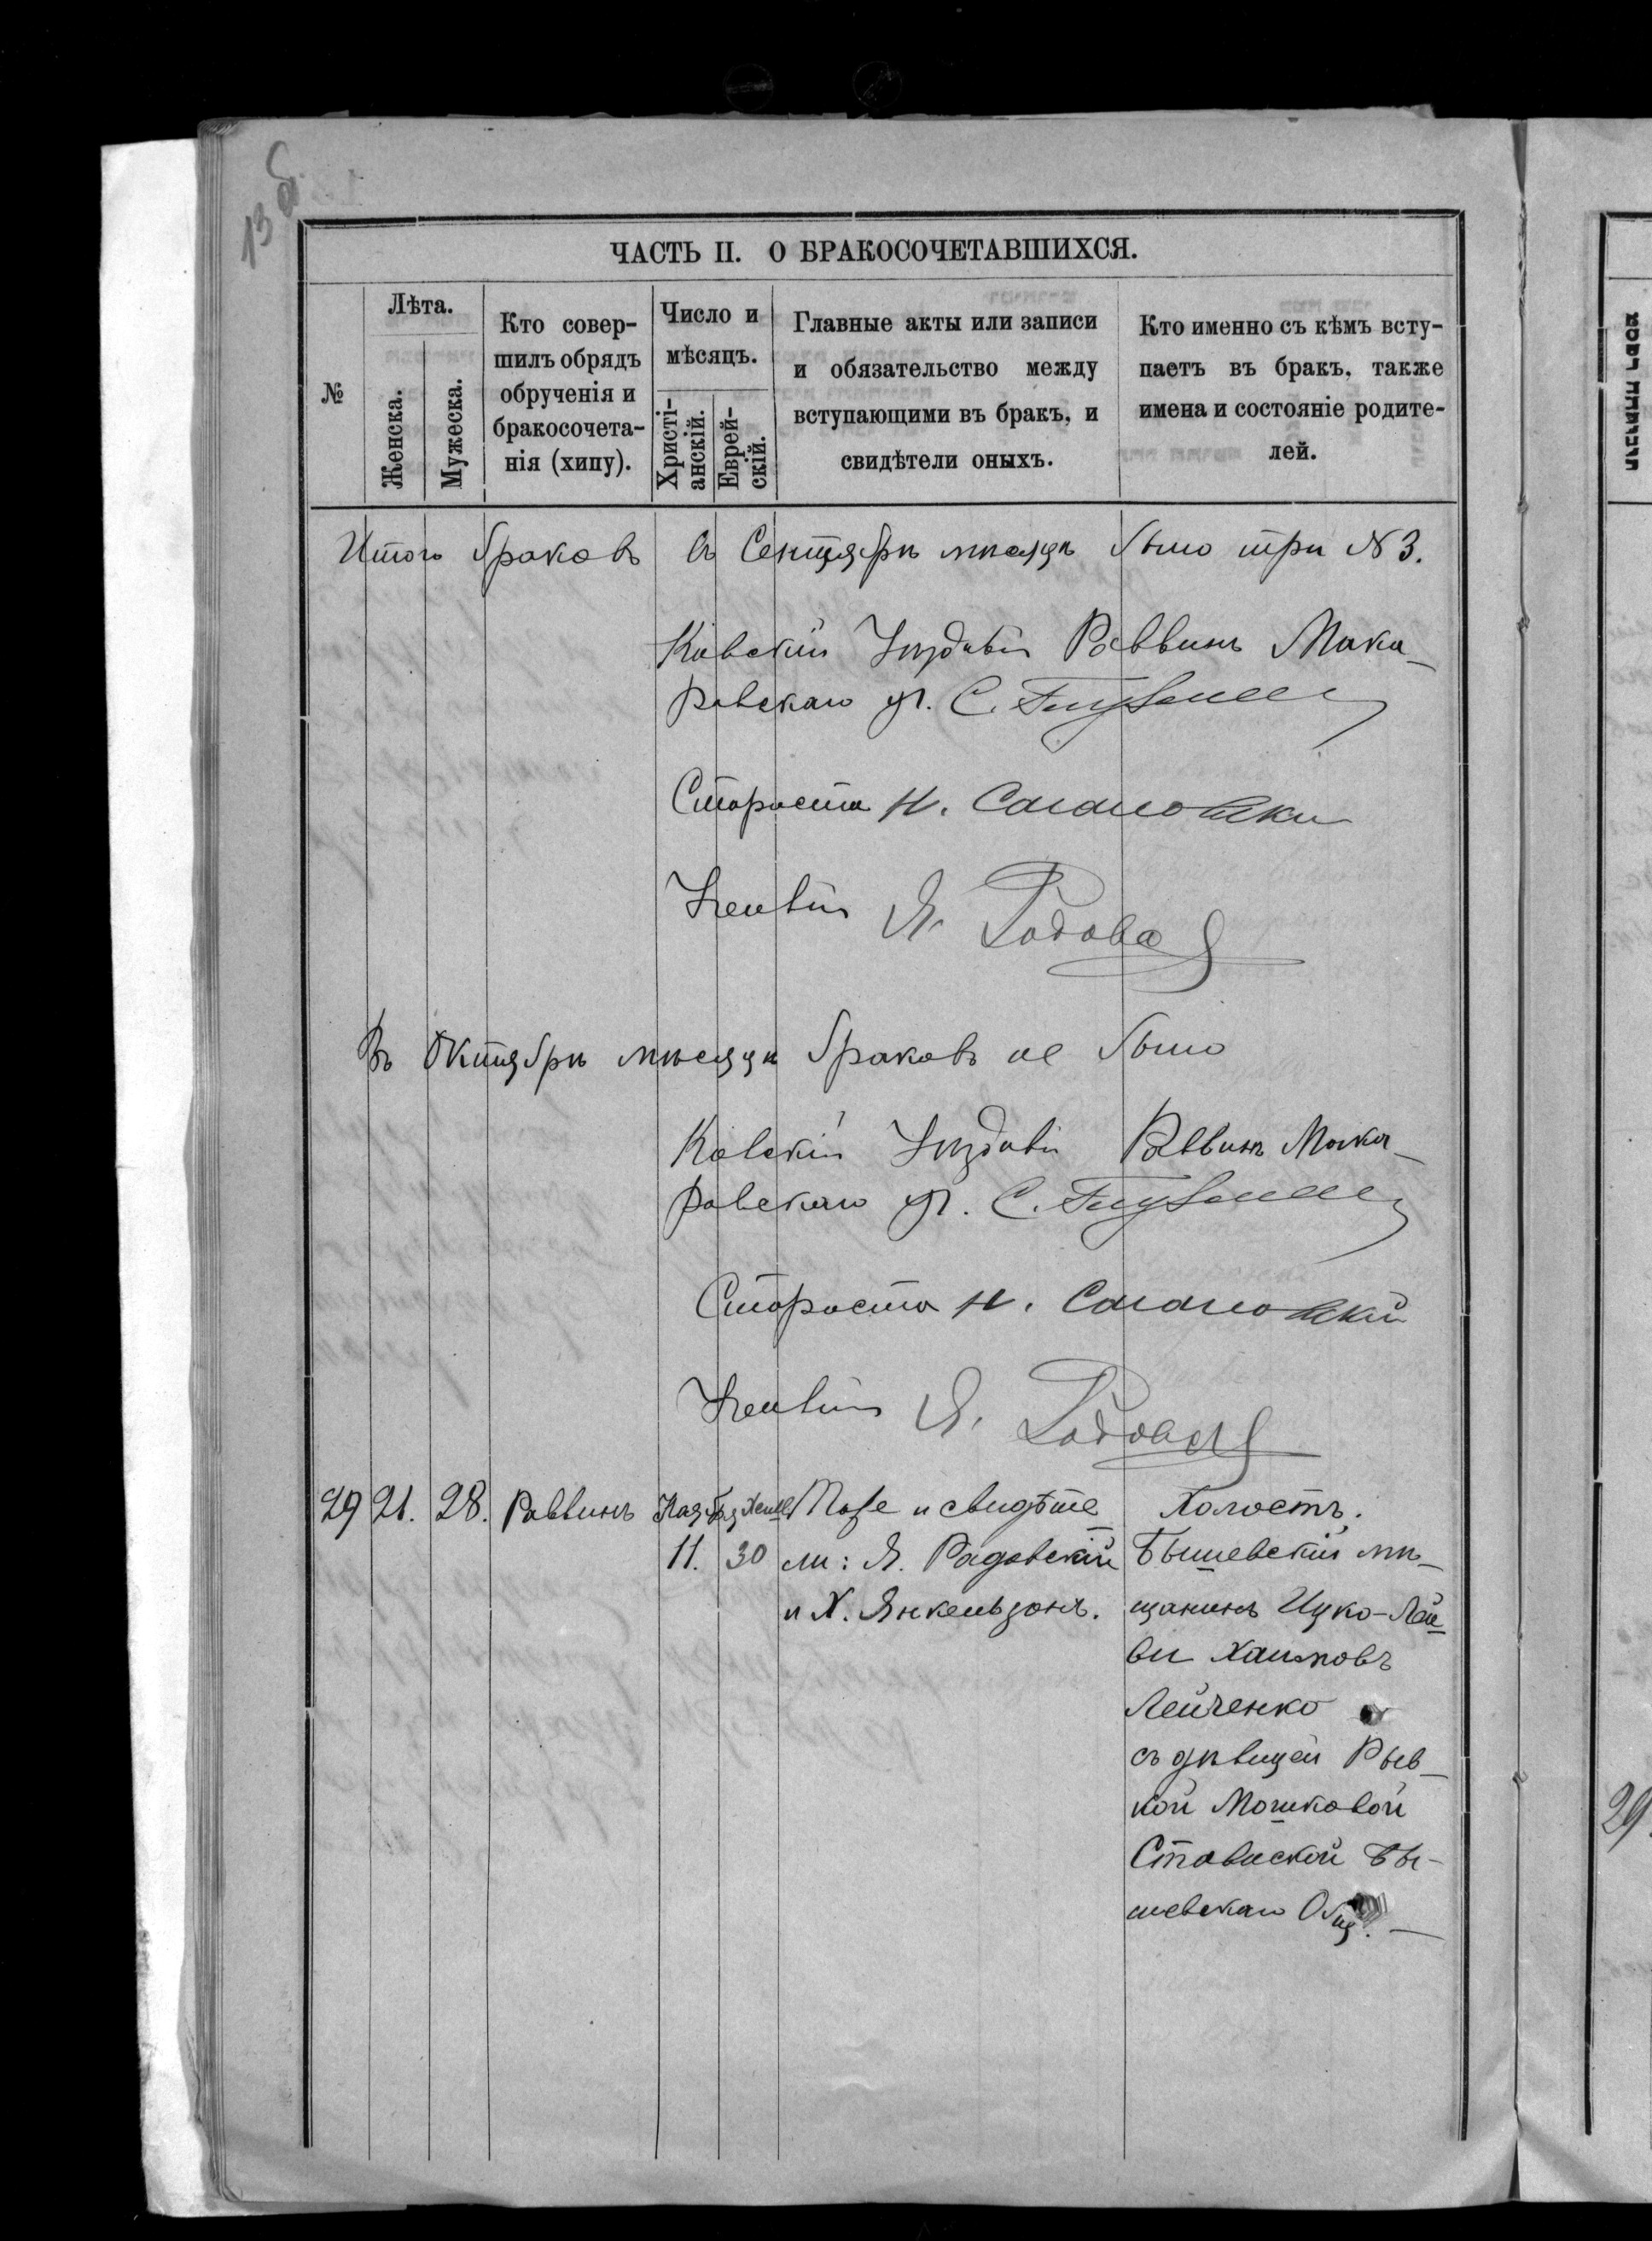 13 об.
ЧАСТЬ II. О БРАКОСОЧЕТАВШИХСЯ.
№
Лѣта.
Женска.
Мужеска.
Кто совер-
шилъ обрядъ
обрученія и
бракосочета-
нія (хипу).
Число и
мѣсяцъ.
Христі-
анскій.
Еврей-
скій.
Главные акты или записи
и обязательство между
вступающими въ бракъ, и
свидѣтели оныхъ.
Кто именно съ кѣмъ всту-
паетъ въ бракъ, также
имена и состояніе родите-
лей.
Итого браковъ въ Сентябрѣ мѣсяцѣ было три № 3.
Кіевскій Уѣздный Раввинъ Мака-
ровскаго уч. С.
Староста Н.
Ученый Я.
Въ Октябрѣ мѣсяцѣ браковъ не было
Кіевскій Уѣздный Раввинъ Мака-
ровскаго уч. С.
Староста Н.
Ученый Я.
29 21. 28. Раввинъ Ноября 11. 30
Тоже и свидѣте-
ли: Я. Радовскій
и Х. Янкельзонъ.
Холостъ,
Бышевскій мѣ-
щанинъ Ицко-Лей-
ви Хаимовъ
Лейченко
съ дѣвицей Рыв-
кой Мошковой
Ставиской Бы-
шевскаго Общ.
29